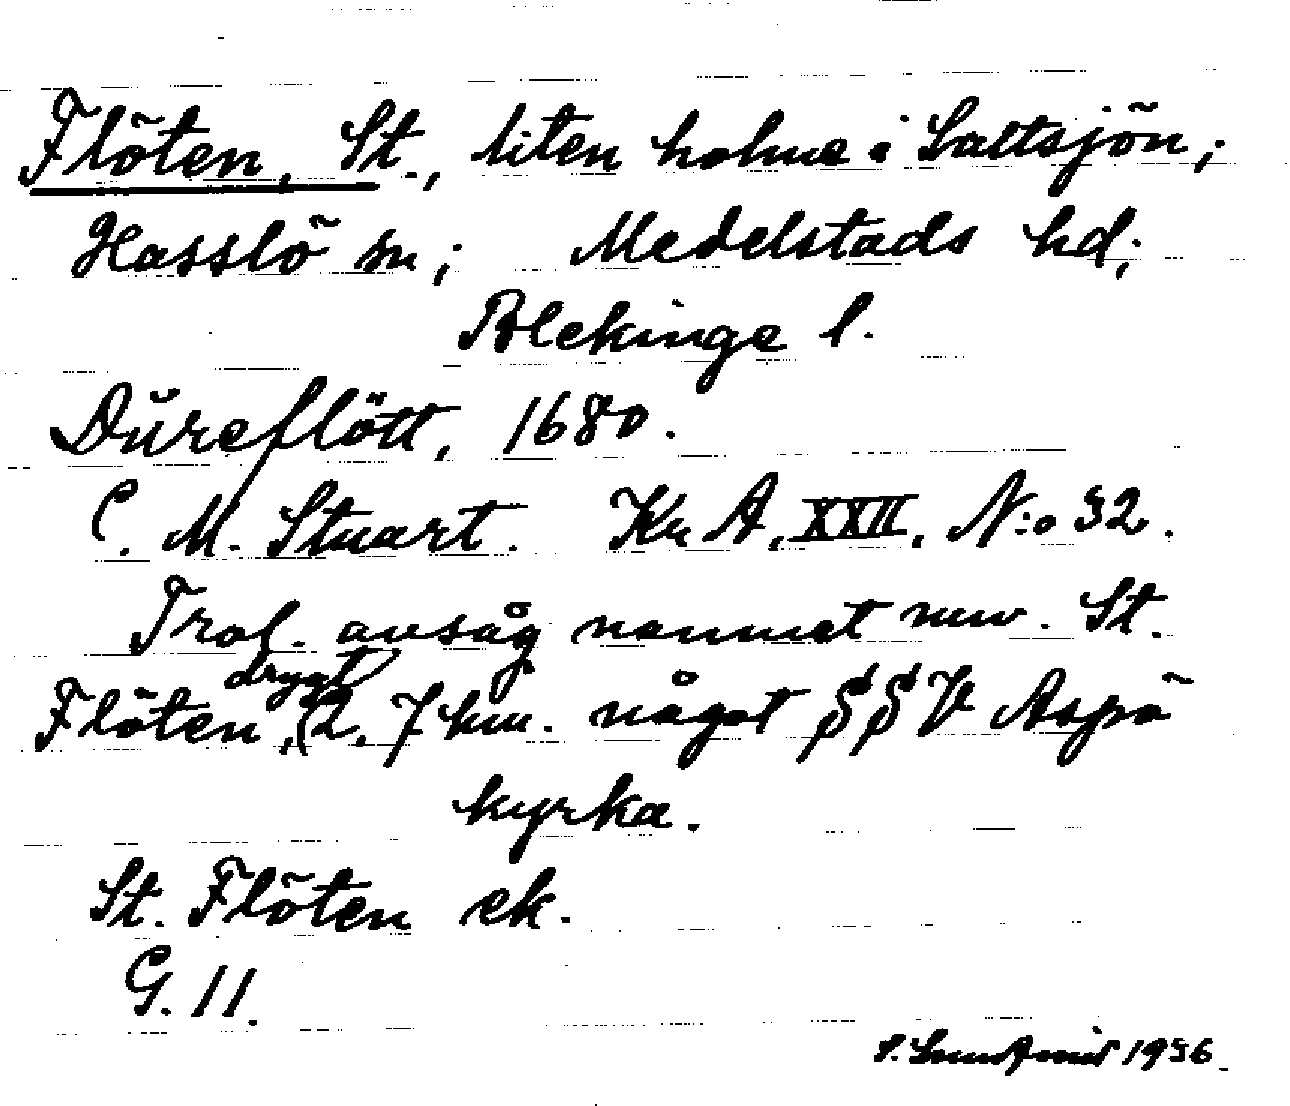 Flöten, St., liten holme i Saltsjön;
Hasslö sn; Medelstads hd;
Blekinge l.
Dŭreflött, 1680.
C. M. Stuart. Kr A, XXII, N:o 32.
Trol. avsåg namnet nuv. St.
Flöten, (drygt 2,7 km. något SSV Aspö
kyrka.
St. Flöten ek.
G. 11.
1956.